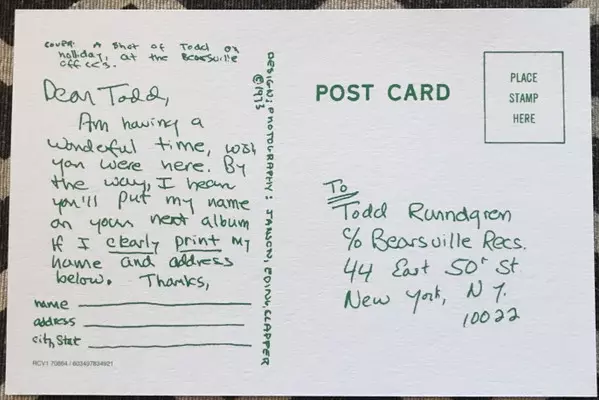 COVER: A Shot of Todd on
holliday, at the Bearsville
officcs.
Dear Todd,
Am having a
wonderful time, wish
you were here. By
the way, I hear
you'll put my name
on your next album
if I clearly print my
name and address
below. Thanks,
name
address
city, Stat
RCV1 70864 / 603497834921
DESIGN; PHOTOGRAPHY: JANSON, EDINY, CLAPPER
©1973
POST CARD
PLACE
STAMP
HERE
To
Todd Runndgren
c/o Bearsville Recs.
44 East 50th St.
New York, N.Y.
10022